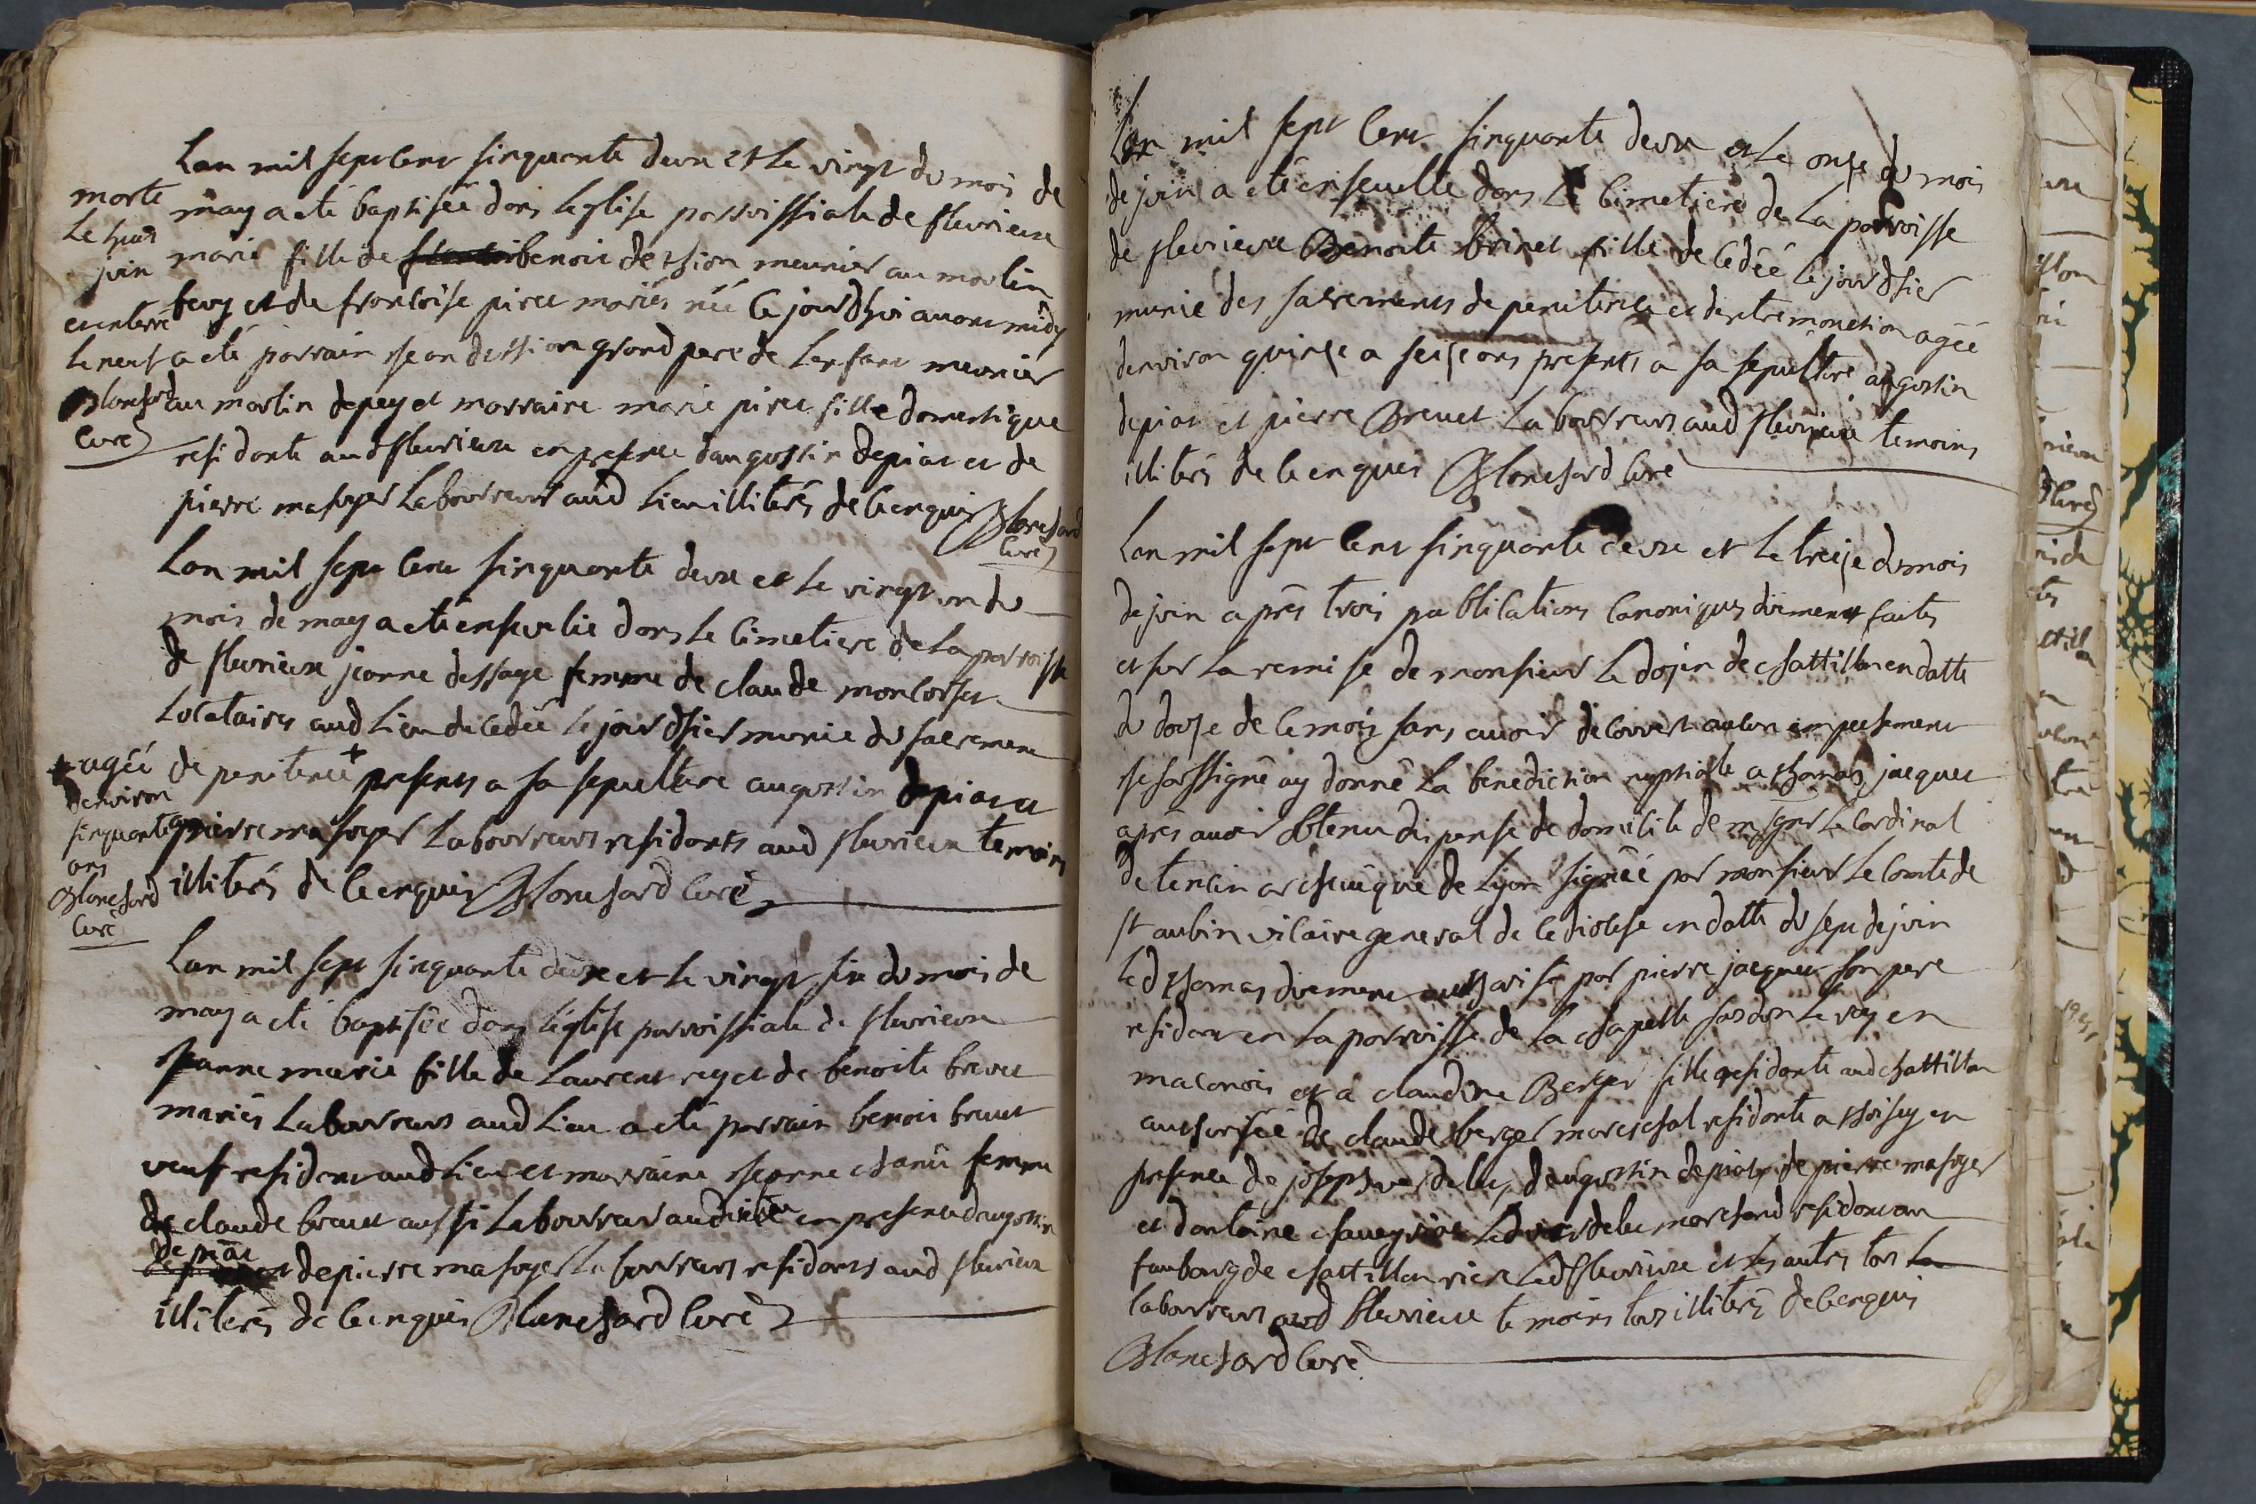 Lan mil sept cent sinquante deux et le vingt du mois de
may a eté baptisée dans leglise parroissiale de fleurieux
marie fille de benoit dession meunier au moulin
et de francoise piret mariés née ce jourdhui avant midy
a eté parrain jean dession grand pere de lenfant meunier
au moulin et marraine marie piret fille domestique
residante aud fleurieux en presence daugustin depiat et de
pierre masoyer laboureurs aud lieu illiterés de ce enquis Blanchard
curé
morte
le huit
juin
enterré
le neuf
Blanchard
curé
Lan mil sept cent sinquante deux et le vingt un du
mois de may a eté ensevelie dans le cimetiere de la parroisse
de fleurieux jeanne dessage femme de claude moncorget
locataires aud lieu decedée le jourdhier munie du sacrement
de penitence + presents a sa sepulture augustin depiat et
pierre masoyer laboureurs residants aud fleurieux temoins
illiterés de ce enquis Blanchard curé
+ agée
denviron
sinquante
ans
Blanchard
curé
Lan mil sept sinquante deux et le vingt six du mois de
may a eté baptisée dans leglise parroissiale de fleurieux
jeanne marie fille de laurent rey et de benoite brevet
mariés laboureurs aud lieu a eté parrain benoit brevet
veuf resident aud lieu et marraine jeanne femme
de claude brevet aussi laboureur aud lieu en presence daugustin
depiat et de pierre masoyer laboureurs residants aud fleurieux
illiterés de ce enquis Blanchard curé
Lan mil sept cent sinquante deux et le onze du mois
de juin a eté ensevelie dans le cimetiere de la parroisse
de fleurieux Benoite fille decedée le jourdhier
munie des sacrements de penitence et dextremonction agée
denviron quinze a seize ans presents a sa sepulture augustin
depiat et pierre Brevet laboureurs aud fleurieux temoins
illiterés de ce enquis Blanchard curé
Lan mil sept cent sinquante deux et le treize du mois
de juin après trois publications canoniques duement faites
et sur la remise de monsieur le dojen de chattillon en datte
du douze de ce mois sans avoir decouvert aucun empechement
je soussigné ay donné la benediction nuptialle a thomas jacquet
après avoir obtenu dispense de domicile de msgnr le cardinal
de tencin archeveque de lyon signée par monsieur le comte de
st aubin vicaire general de ce diocese en datte du sept de juin
led thomas duement authorisé par pierre jacquet son pere
resident en la parroisse de la chapelle en
maconois et a claudine Berger fille residante aud chattillon
authorisée de claude berger mareschal residante a thoissey en
presence de joseph daugustin depiat, de pierre masoyer
et dantoine led marchand resident au
faubourg de chattillon riere led fleurieux et les autres tous
laboureurs aud fleurieux temoins tous illiterés de ce enquis
Blanchard curé